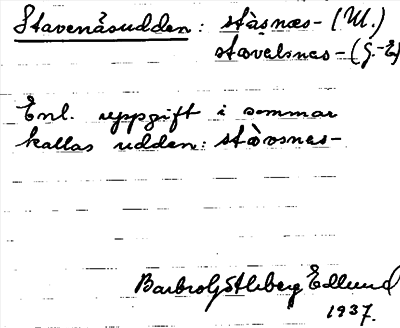 Stavenäsudden: stàsnæs- (M.)
stavelsnes- (G.-E)
Enl. uppgift i sommar
kallas udden: stàvsnes-
Barbro Edlund
1937.